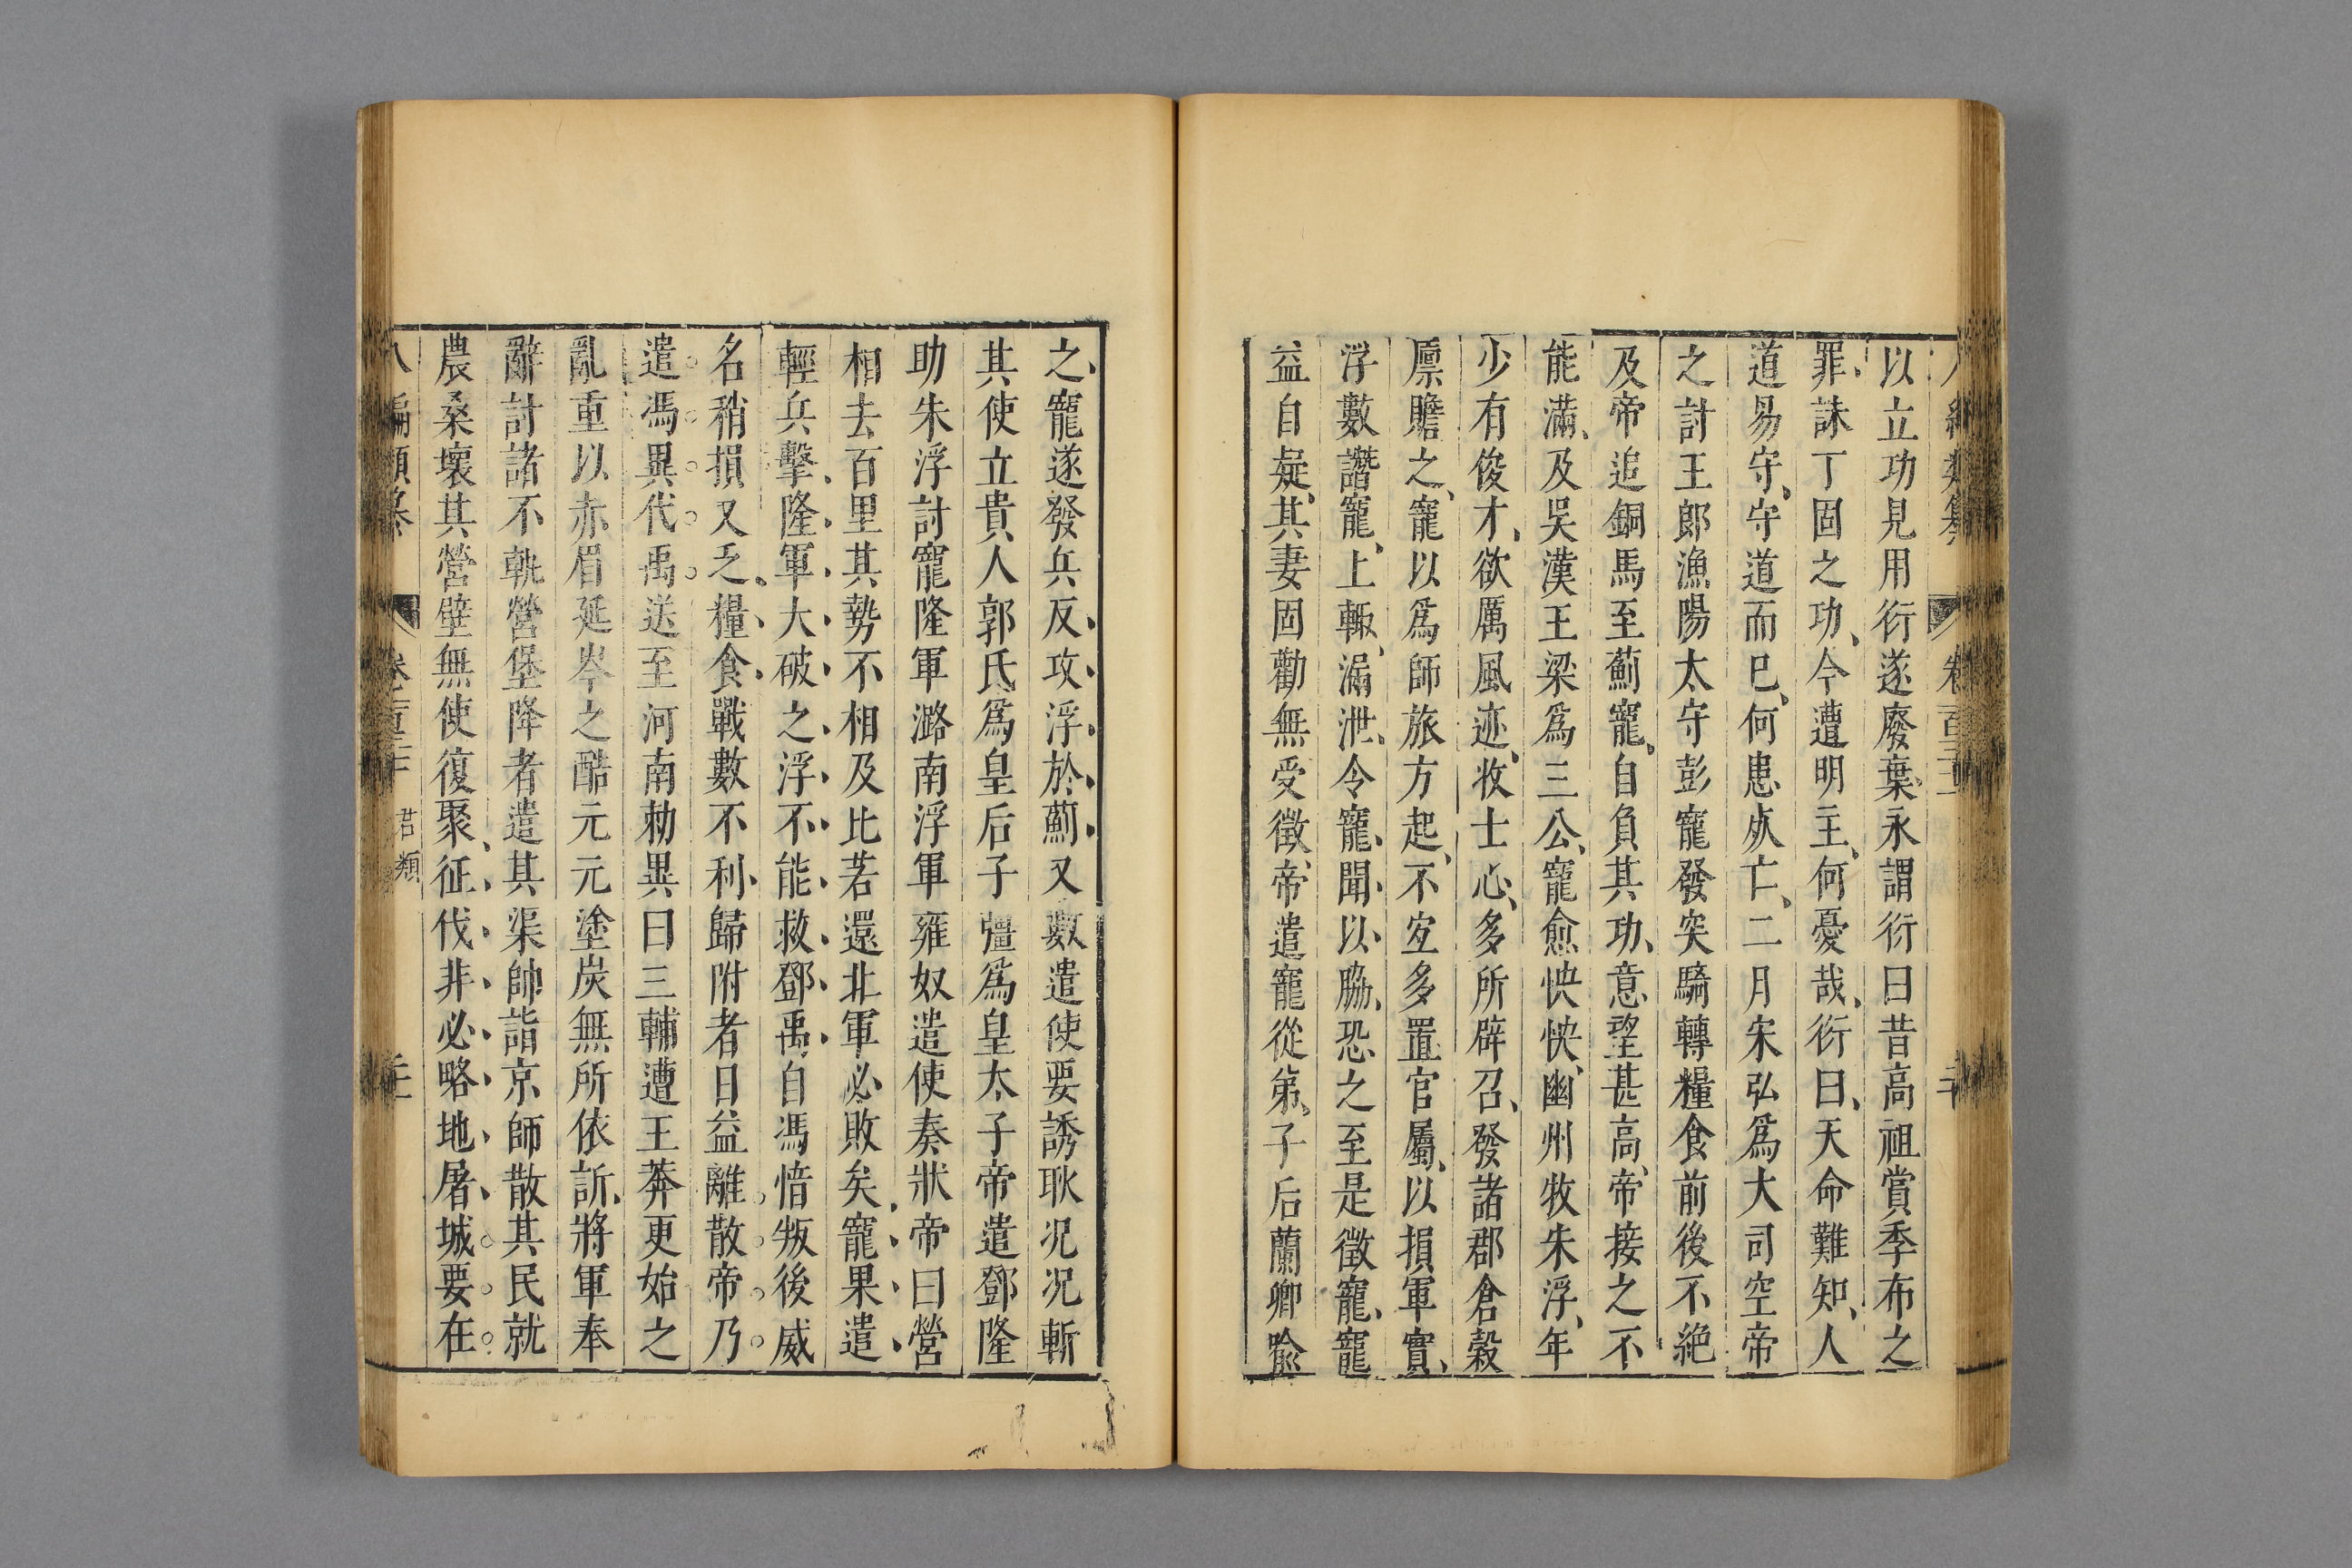 以立功見用衍遂廢棄永謂衍曰昔高祖賞季布之
罪、誅丁固之功、今遭明主、何憂哉、衍曰、天命難知、人
道易守、守道而已、何患死亡、二月宋弘爲大司空帝
之討王郎漁陽太守彭寵發突騎轉糧食前後不絶
及帝追銅馬至薊寵、自負其功、意望甚高、帝接之不
能滿、及吳漢王梁爲三公、寵愈怏怏、幽州牧朱浮、年
少有俊才、欲厲風迹、收士心、多所辟召、發諸郡倉穀
廩贍之、寵以爲師旅方起、不宜多置官屬、以損軍實、
浮數譖寵、上輒漏泄、令寵聞以脇恐之至是徵寵、寵
益自疑、其妻固勸無受徵、帝遣寵從弟、子后蘭卿喩
之、寵遂發兵反、攻浮於薊又數遣使要誘耿況況斬
其使立貴人郭氏爲皇后子彊爲皇太子帝遣鄧隆
助朱浮討寵隆軍潞南浮軍雍奴遣使奏狀帝曰營
相去百里其勢不相及比若還北軍必敗矣寵果遣
輕兵擊隆軍大破之浮不能救鄧禹自馮愔叛後威
名稍損又乏糧食戰數不利歸附者日益離散帝乃
遣馮異代禹送至河南勅異曰三輔遭王莽更始之
亂重以赤眉延岑之酷元元塗炭無所依訴、將軍奉
辭討諸不軌營堡降者遣其渠帥詣京師散其民就
農桑壞其營壁無使復聚、征伐非必略地屠城要在
君類